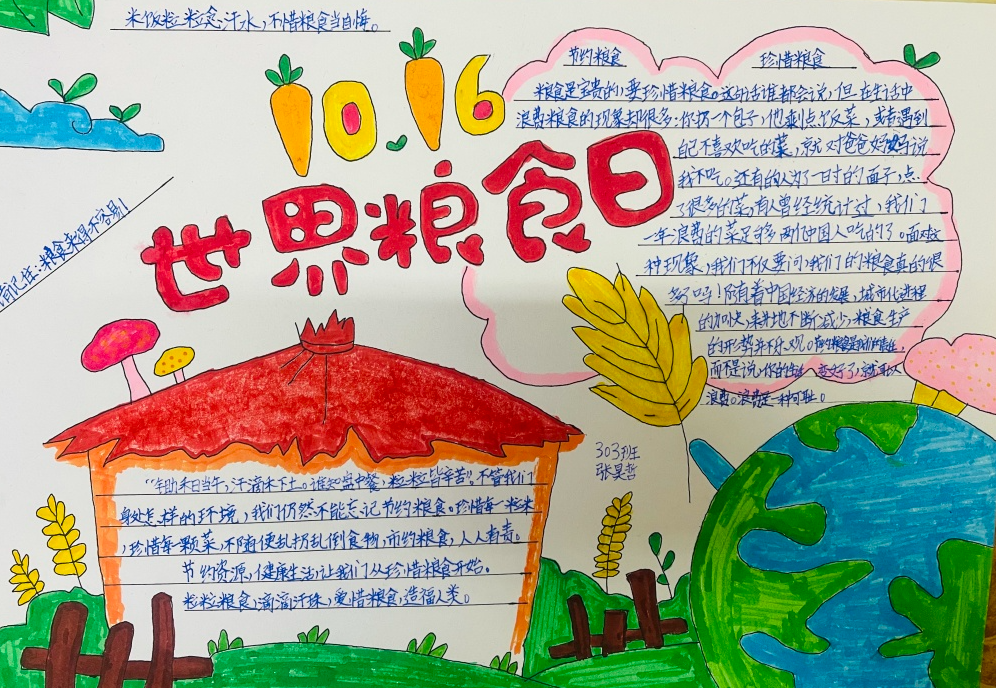 米饭粒粒念汗水，不惜粮食当自悔。
10.16
世界粮食日
请记住：粮食来得不容易！
节约粮食 珍惜粮食
粮食是宝贵的，要珍惜粮食。这句话谁都会说，但在生活中
浪费粮食的现象却很多，你扔一个包子，他剩点饭菜，或者遇到
自己不喜欢吃的菜，就对爸爸妈妈说
我不吃。还有的人为了一时的面子，点
了很多的菜，有人曾经统计过，我们
一年浪费的菜足够两亿中国人吃的了。面对这
种现象，我们不仅要问，我们的粮食真的很
多吗！随着中国经济的发展，城市化进程
的加快，耕地不断减少，粮食生产
的形势并不乐观。
而不是说，你的生活变好了，就可以
浪费。浪费是一种可耻。
303班
张昊哲
“锄禾日当午，汗滴禾下土。谁知盘中餐，粒粒皆辛苦”，不管我们
身处怎样的环境，我们仍然不能忘记节约粮食。珍惜每一粒米
，珍惜每一颗菜，不随便乱扔乱倒食物，节约粮食，人人有责。
节约资源，健康生活，让我们从珍惜粮食开始。
粒粒粮食，滴滴汗珠，爱惜粮食，造福人类。